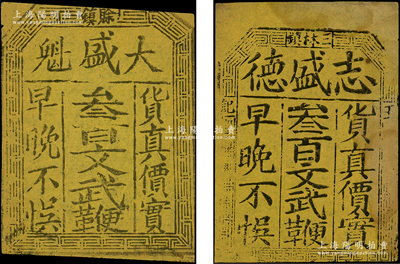 上海陽明拍賣
SHANGHAI YANGMING AUCTION
賒鎮
大盛魁
貨真價實
叁百文武鞭
早晚不悞
上海陽明拍賣
林鎮
志盛德
貨真價實
叁百文武鞭
早晚不悞
記
上海陽明拍賣